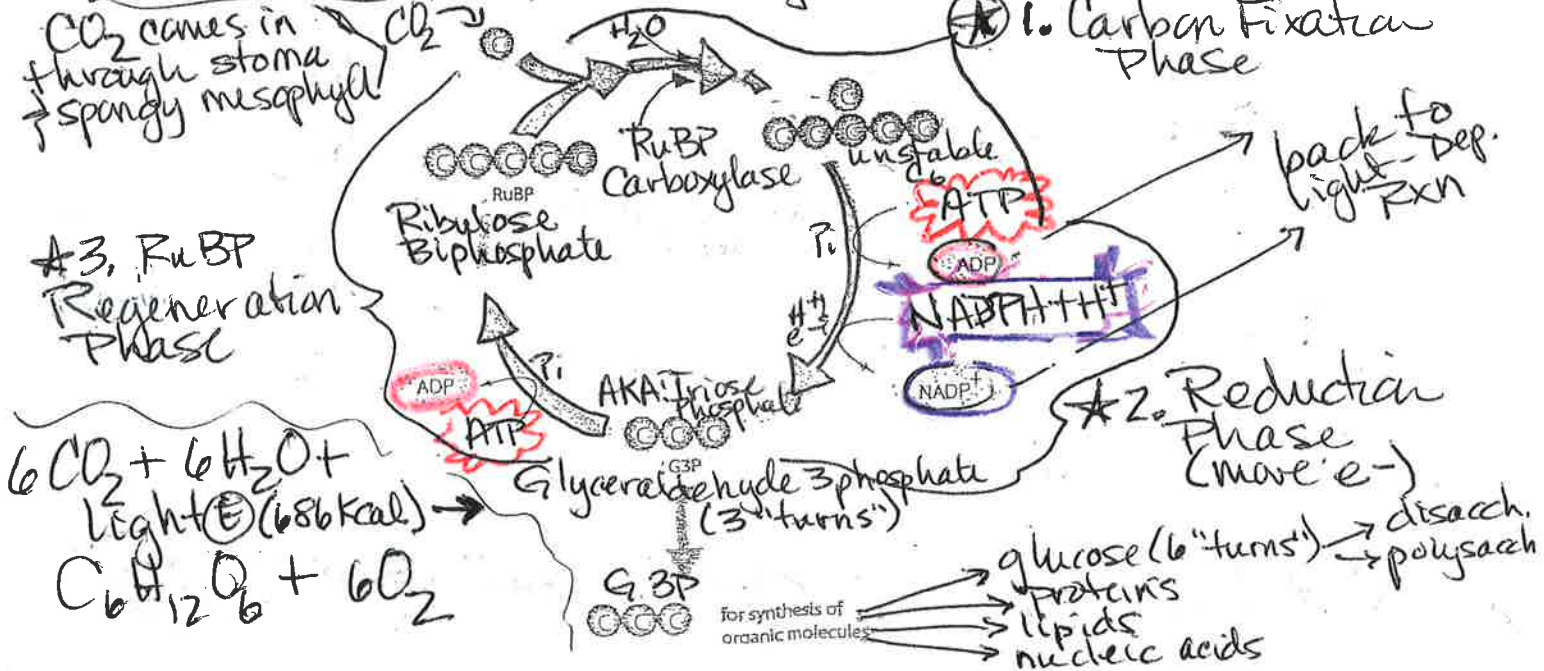 CO2 comes in
through stoma
} spongy mesophyll
CO2
H2O
★ 1. Carbon Fixation
Phase
RuBP
Carboxylase
unstable
C6
RuBP
Ribulose
Biphosphate
ATP
Pi
ADP
back to
light-Dep.
Rxn
★3. RuBP
Regeneration
Phase
H+
e-
NADPH+H+
NADP+
ADP
Pi
ATP
AKA: Triose
Phosphate
★2. Reduction
Phase
(move e-)
G3P
Glyceraldehyde 3 phosphate
(3 "turns")
6CO2 + 6H2O +
Light E (686 Kcal) →
C6H12O6 + 6O2
G3P
for synthesis of
organic molecules
glucose (6 "turns")
disacch.
polysacch
proteins
lipids
nucleic acids
C C C C C
C
C C C C C
C
C C C
C C C